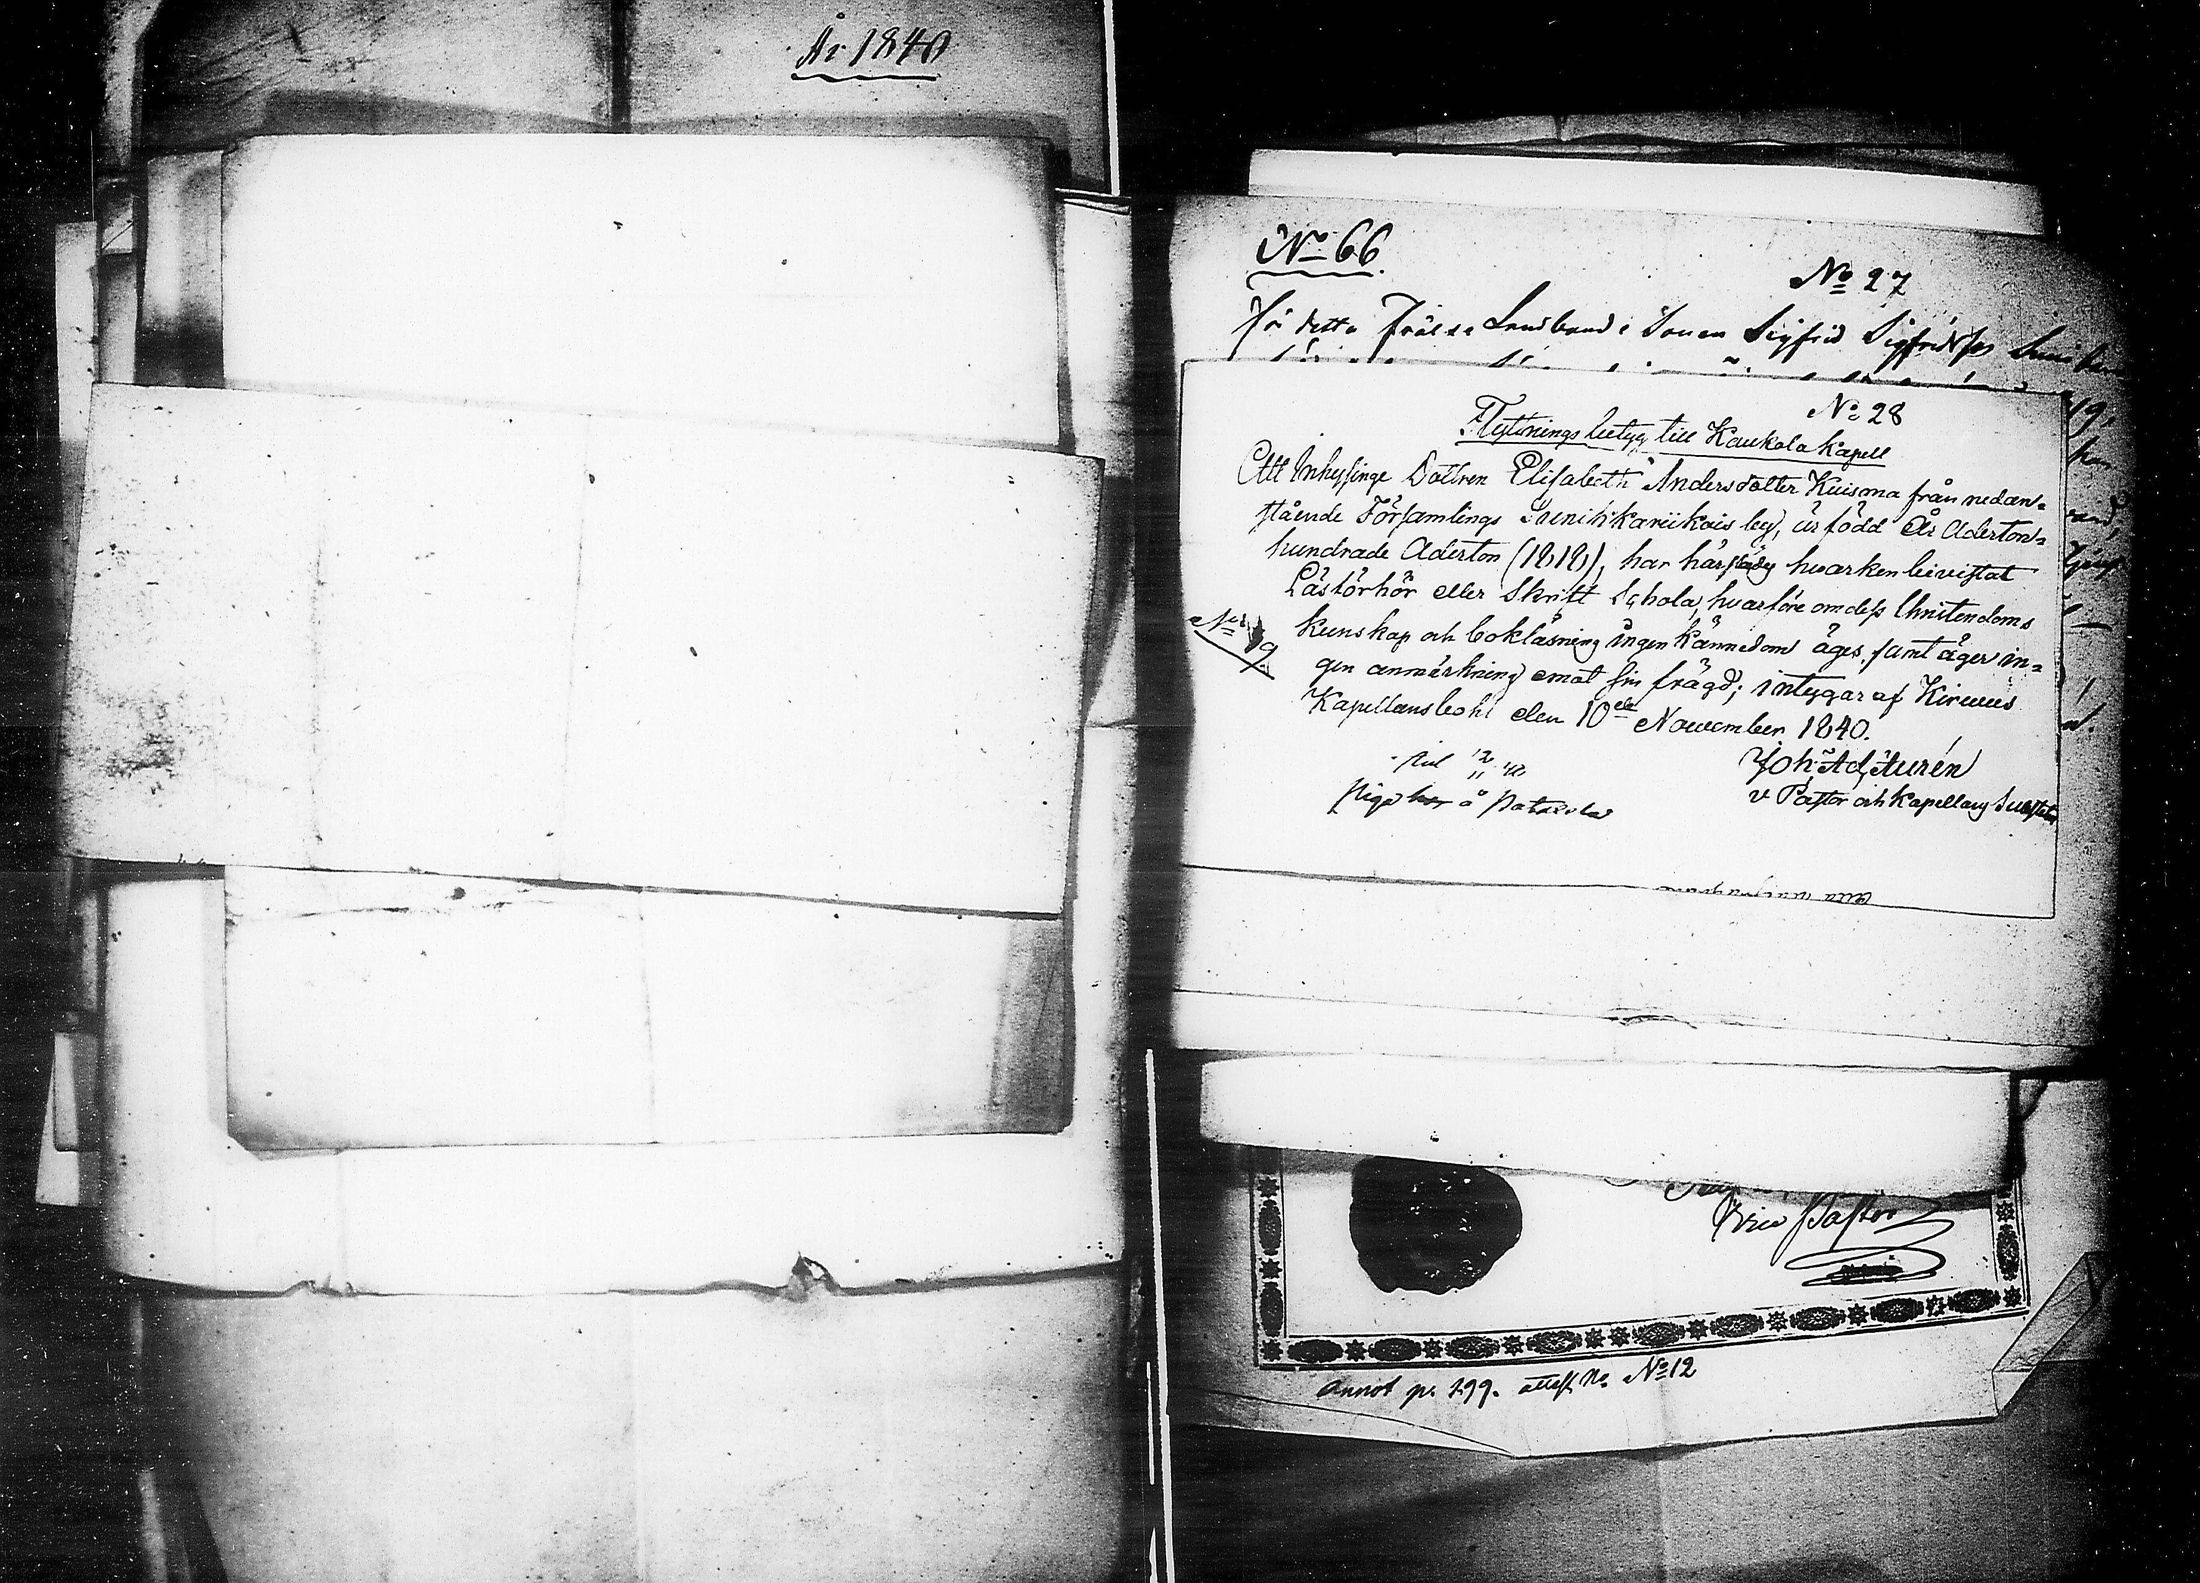 År 1840
No 66
No 27
För detta Frälse Landbonde Sonen Sigfrid Sigfridsson
No 28
Flyttnings betyg till Kaukola Kapell
Att Inhysinge Dottren Elisabeth Andersdotter Kuisma från nedan-
stående Församlings by, är född År Aderton-
hundrade Aderton (1818), har härstädes hvarken bevistat
Läsförhör eller Skrift Schola, hvarföre om dess Christendoms
kunskap och bokläsning ingen kännedom äges, samt äger in-
gen anmärkning emot sin frägd; intygar af Kirwus
Kapellansbohl den 10de November 1840.
No 9
Joh: Ad: Aurén
v Pastor och Kapellans Substitut
Piga å
Pastor
Annot p. 199. attest No No 12